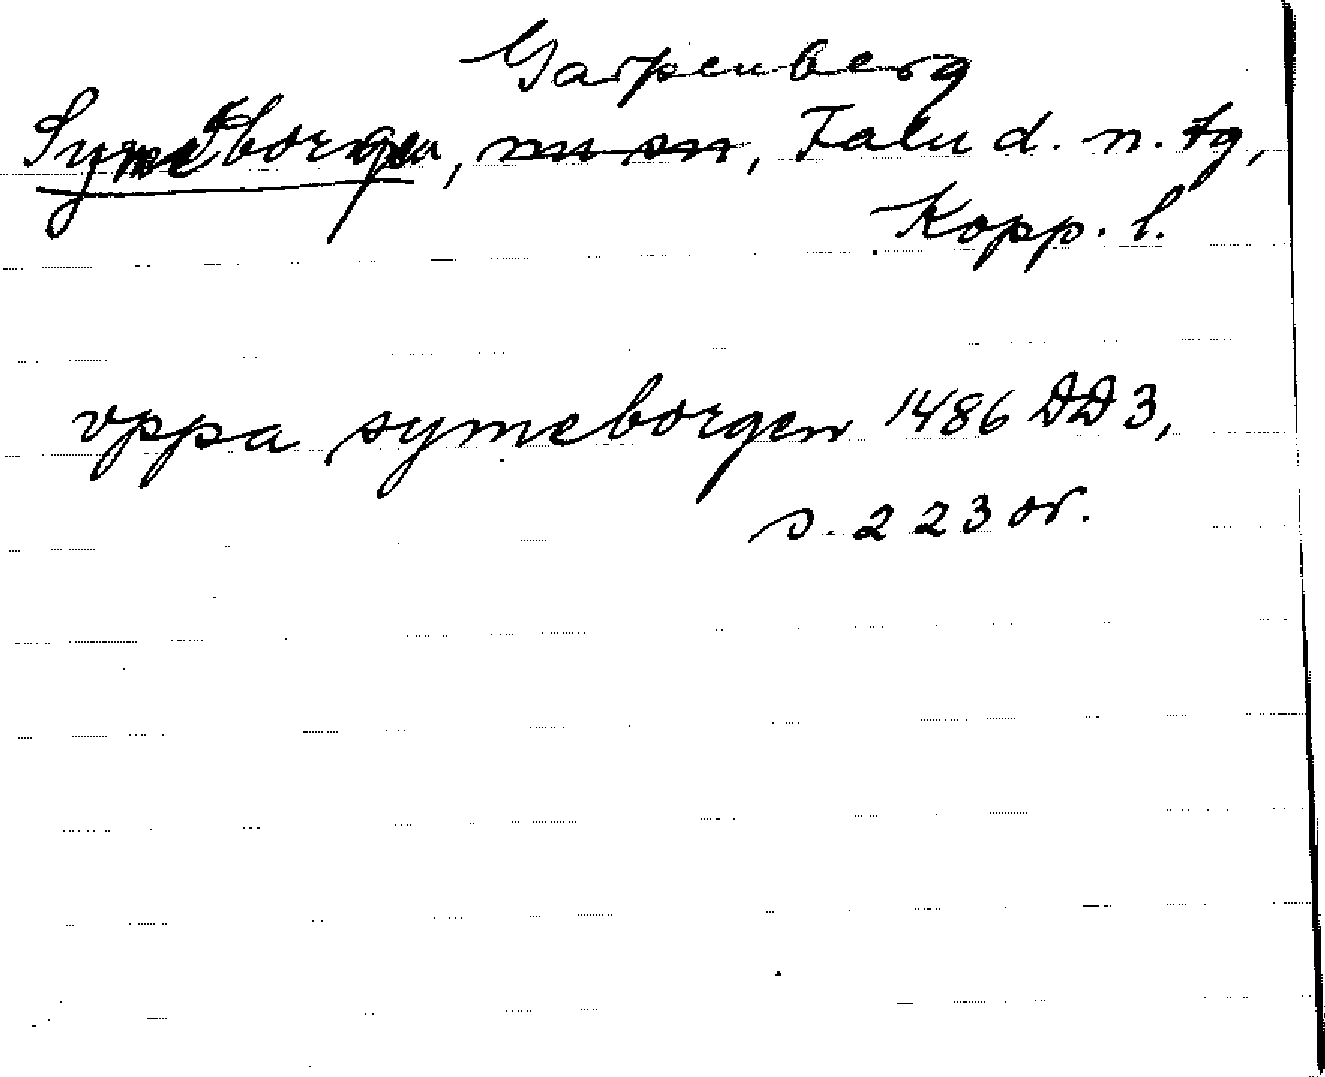 Garpenberg
Symeborgen, nu sn, Falu d. n. tg,
Kopp. l.
vppa symeborgen 1486 DD 3,
s. 223 or.